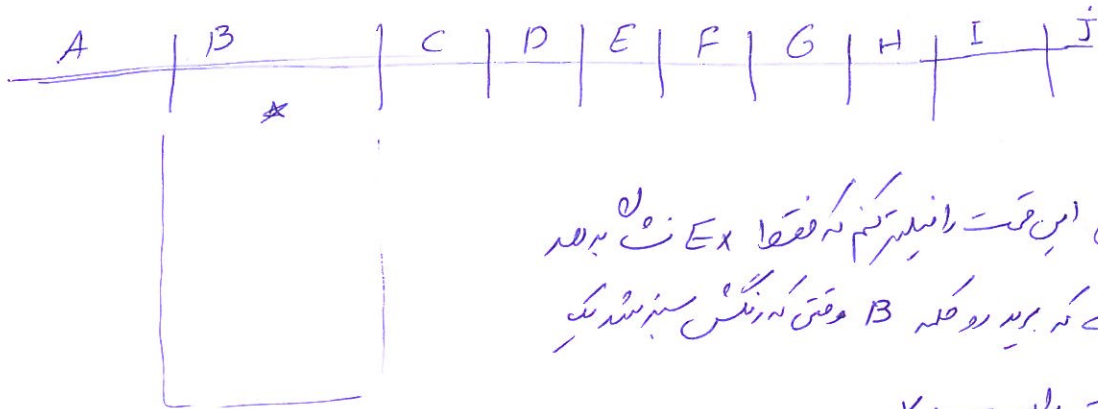 A B C D E F G H I J
*
این قسمت را فیلتر کنم که فقط Ex نشان بدهد
که برید رو کلمه B وقتی که رنگش سبز شد یک